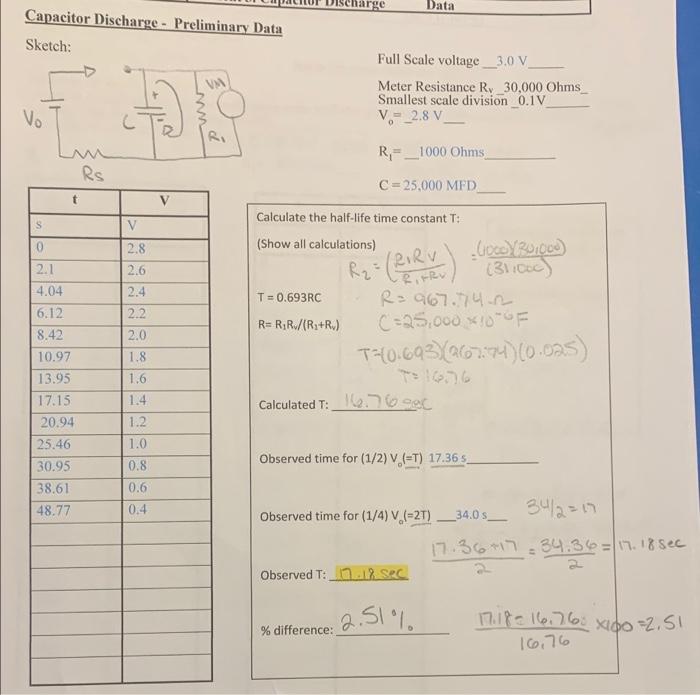 Capacitor Discharge
Data
Capacitor Discharge - Preliminary Data
Sketch:
Full Scale voltage __3.0 V____
Meter Resistance Rv _30,000 Ohms_
Smallest scale division _0.1V_____
Vo= _2.8 V___
R1= __1000 Ohms_________
C = 25,000 MFD____
Vo
C
+
-
R
VM
R1
Rs
t V
s V
0 2.8
2.1 2.6
4.04 2.4
6.12 2.2
8.42 2.0
10.97 1.8
13.95 1.6
17.15 1.4
20.94 1.2
25.46 1.0
30.95 0.8
38.61 0.6
48.77 0.4
Calculate the half-life time constant T:
(Show all calculations)
R2 = (R1Rv / R1+Rv) = (1000)(30,000) / (31,000)
T = 0.693RC
R = 967.74 Ω
R= R1Rv/(R1+Rv)
C = 25,000 x10^-6 F
T = (0.693)(967.74)(0.025)
T = 16.76
Calculated T: 16.76 sec
Observed time for (1/2) Vo(=T) 17.36 s
Observed time for (1/4) Vo(=2T) __34.0 s__
34/2 = 17
17.36+17 / 2 = 34.36 / 2 = 17.18 sec
Observed T: 17.18 sec
% difference: 2.51%
17.18 - 16.76 / 16.76 x100 = 2.51